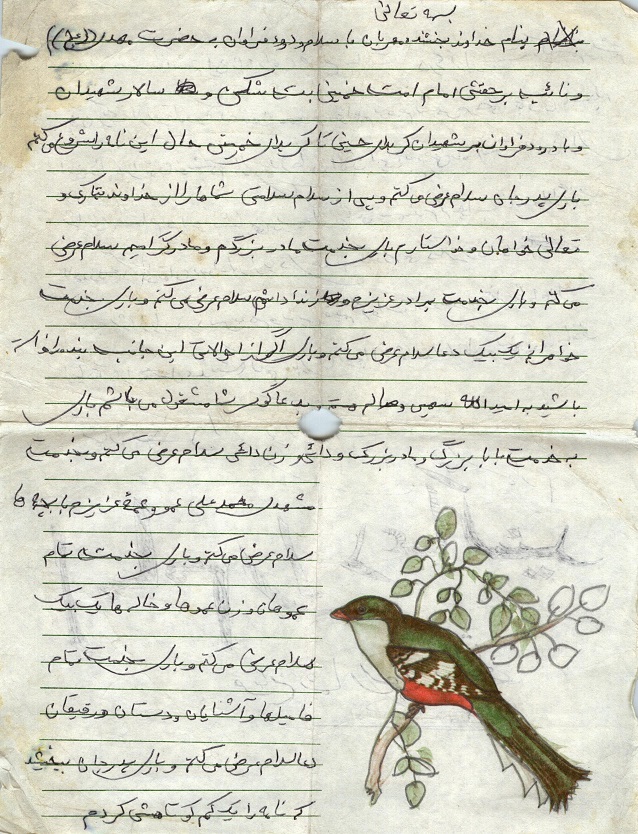 بسمه تعالی
بنام خداوند بخشنده مهربان با سلام و درود فراوان به حضرت مهدی (عج)
و نائب برحقش امام امت خمینی بت شکن و سالار شهیدان
و با درود فراوان بر شهیدان کربلای حسینی تا کربلای خمینی حال این نامه را شروع می کنم
باری پدر جان سلام عرض می کنم و پس از سلام سلامتی شما را از خداوند تبارک و
تعالی خواهان و خواستارم باری خدمت مادر بزرگم و مادر گرامیم سلام عرض
می کنم و باری خدمت برادر عزیزم سلام عرض می کنم و باری خدمت
خواهرانم یک بیک دعا سلام عرض می کنم و باری اگر از احوالات این جانب بنده خواسته
باشید به امید الله سهمی و سالم هستم و بدعاگوی شما مشغول می باشم باری
به خدمت بابا بزرگ و مادر بزرگ و دائی و زن دائی سلام عرض می کنم و خدمت
مشهدی محمد علی عمو و عمه عزیزم با بچه ها
سلام عرض می کنم و باری بخدمت تمام
عموهای و زن عموها و خاله ها یک بیک
سلام عرض می کنم و باری خدمت تمام
فامیلها و آشنایان و دستان و رفیقان
دعا سلام عرض می کنم و باری پدر جان ببخشید
که نامه را یک کم کوتاهی کردم